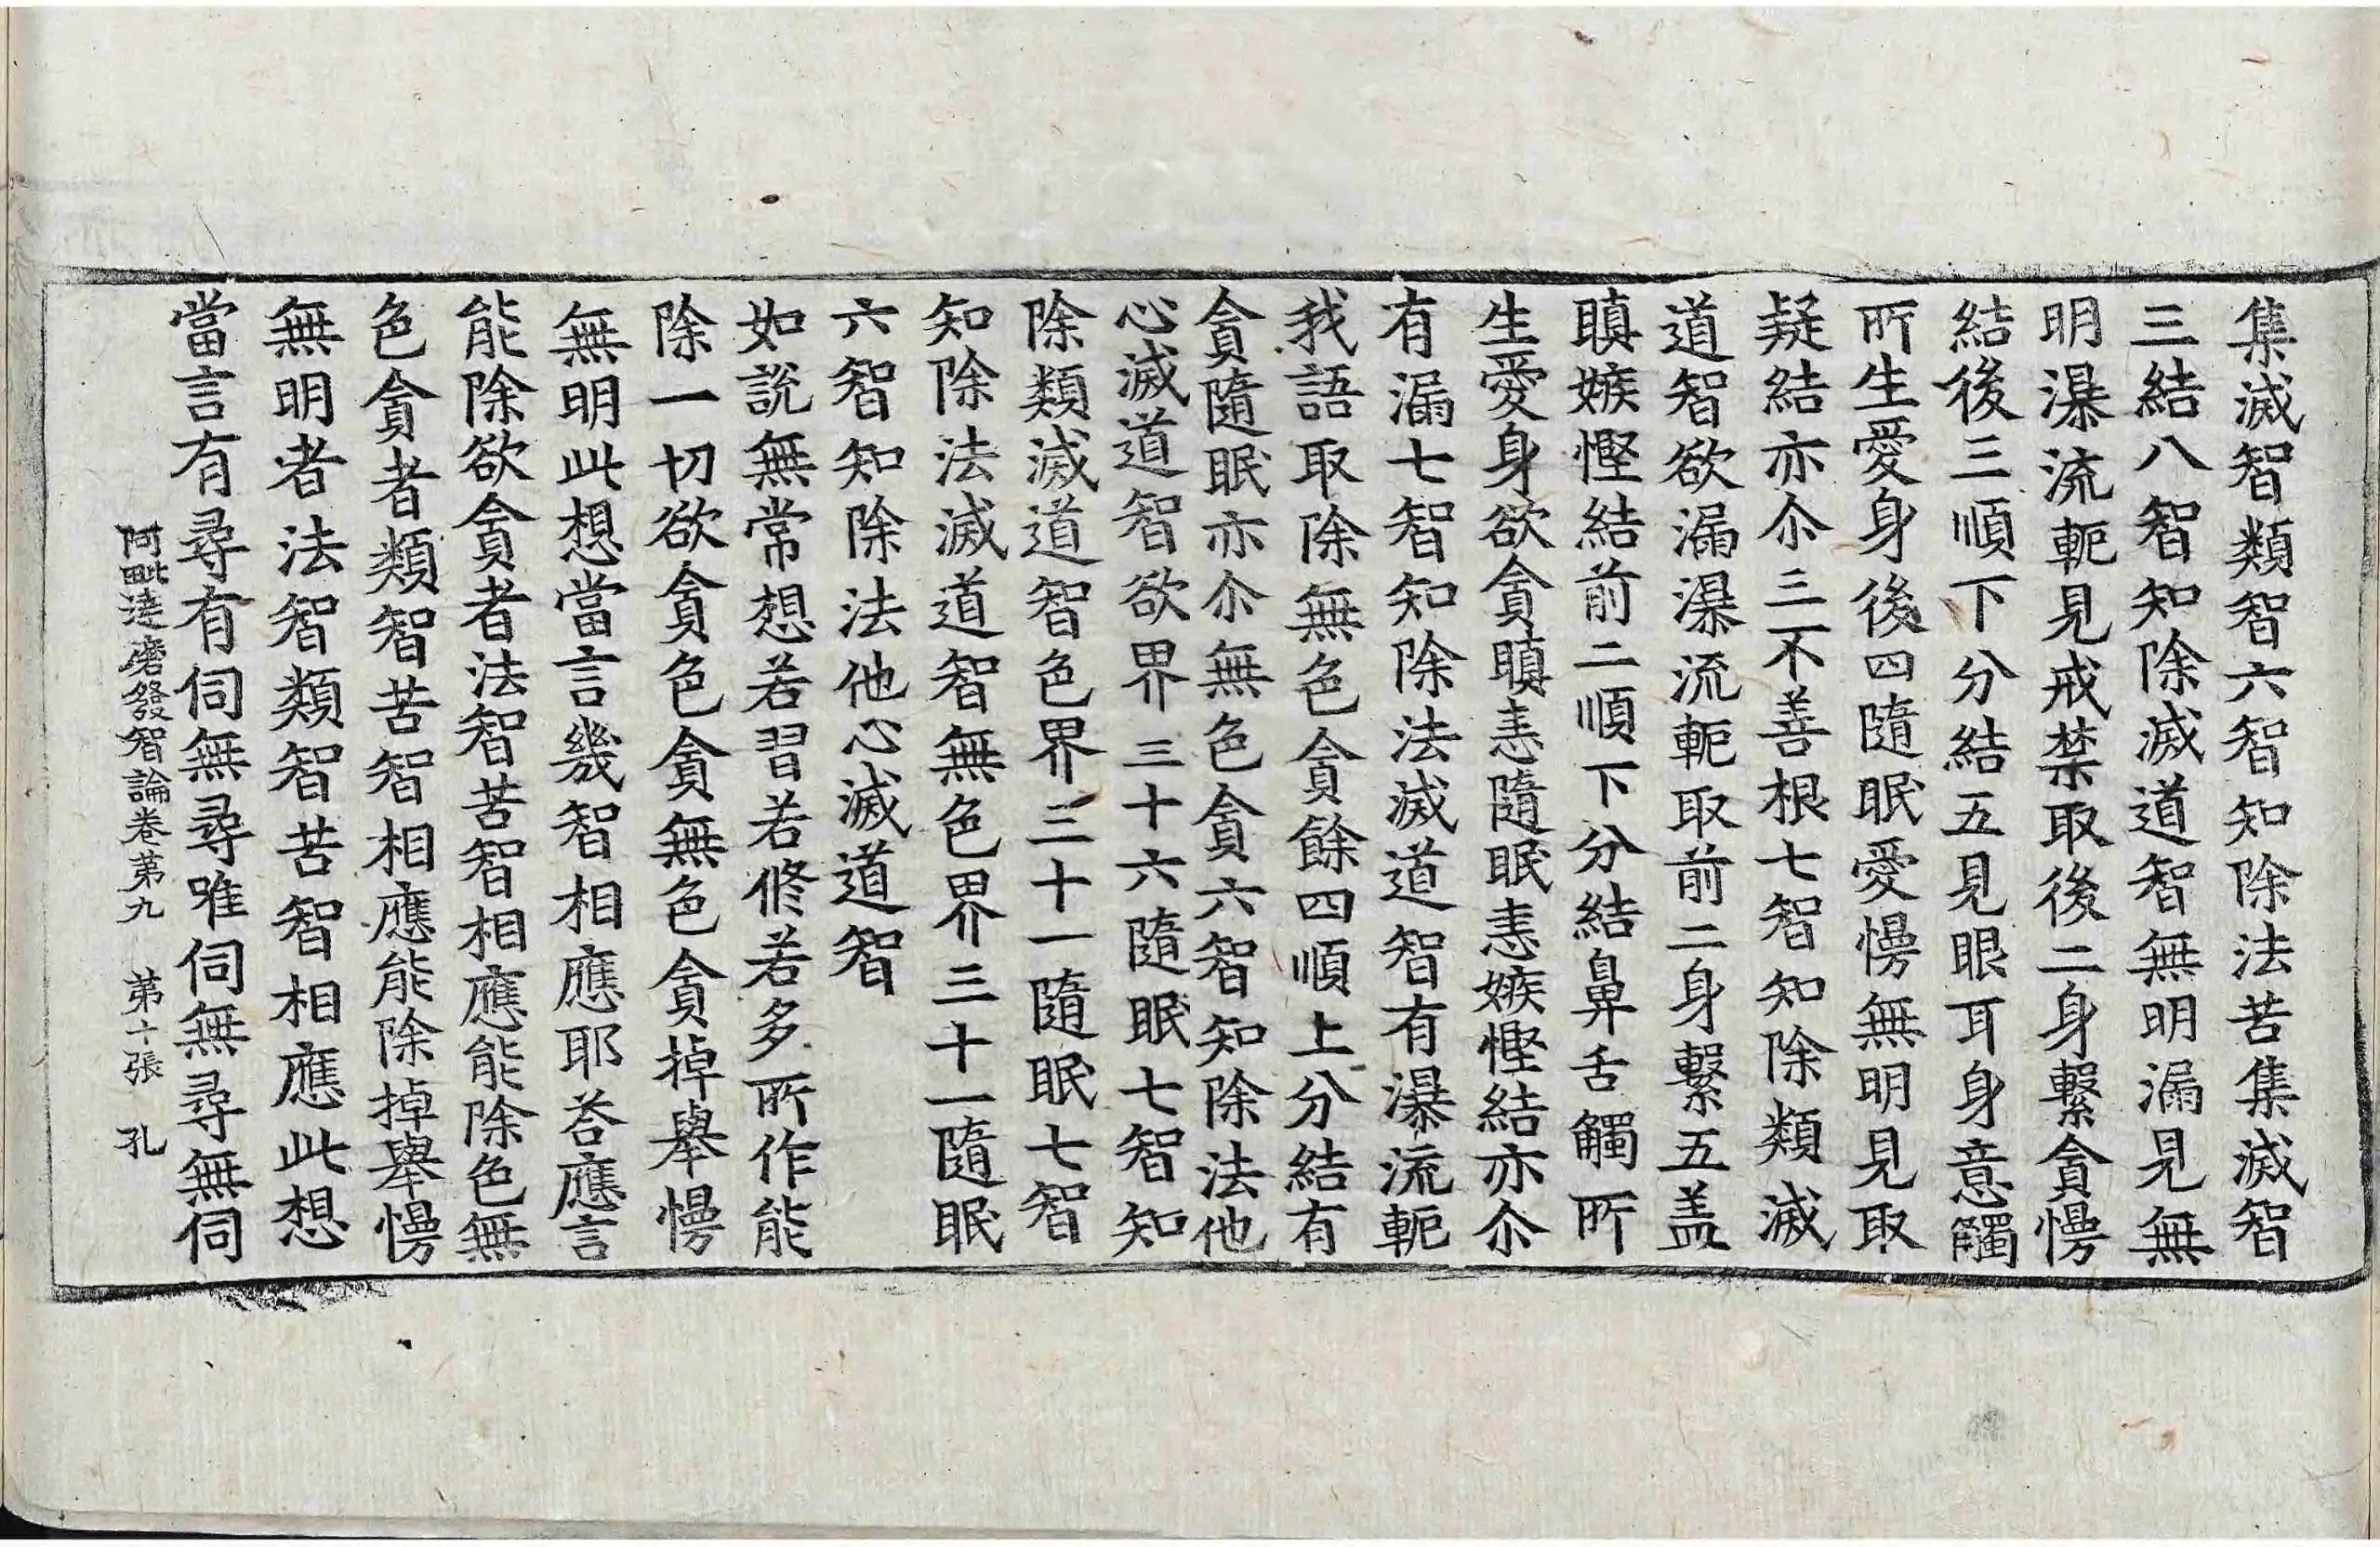 集滅智類智六智知除法苦集滅智
三結八智知除滅道智無明漏見無
明瀑流軛見戒禁取後二身繫貪慢
結後三順下分結五見眼耳身意觸
所生愛身後四隨眠愛慢無明見取
疑結亦尒三不善根七智知除類滅
道智欲漏瀑流軛取前二身繫五盖
瞋嫉慳結前二順下分結鼻舌觸所
生愛身欲貪瞋恚隨眠恚嫉慳結亦尒
有漏七智知除法滅道智有瀑流軛
我語取除無色貪餘四順上分結有
貪隨眠亦尒無色貪六智知除法他
心滅道智欲界三十六隨眠七智知
除類滅道智色界三十一隨眠七智
知除法滅道智無色界三十一隨眠
六智知除法他心滅道智
如說無常想若習若修若多所作能
除一切欲貪色貪無色貪掉舉慢
無明此想當言幾智相應耶荅應言
能除欲貪者法智苦智相應能除色無
色貪者類智苦智相應能除掉舉慢
無明者法智類智苦智相應此想
當言有尋有伺無尋唯伺無尋無伺
阿毗達磨發智論卷第九 第十張 孔